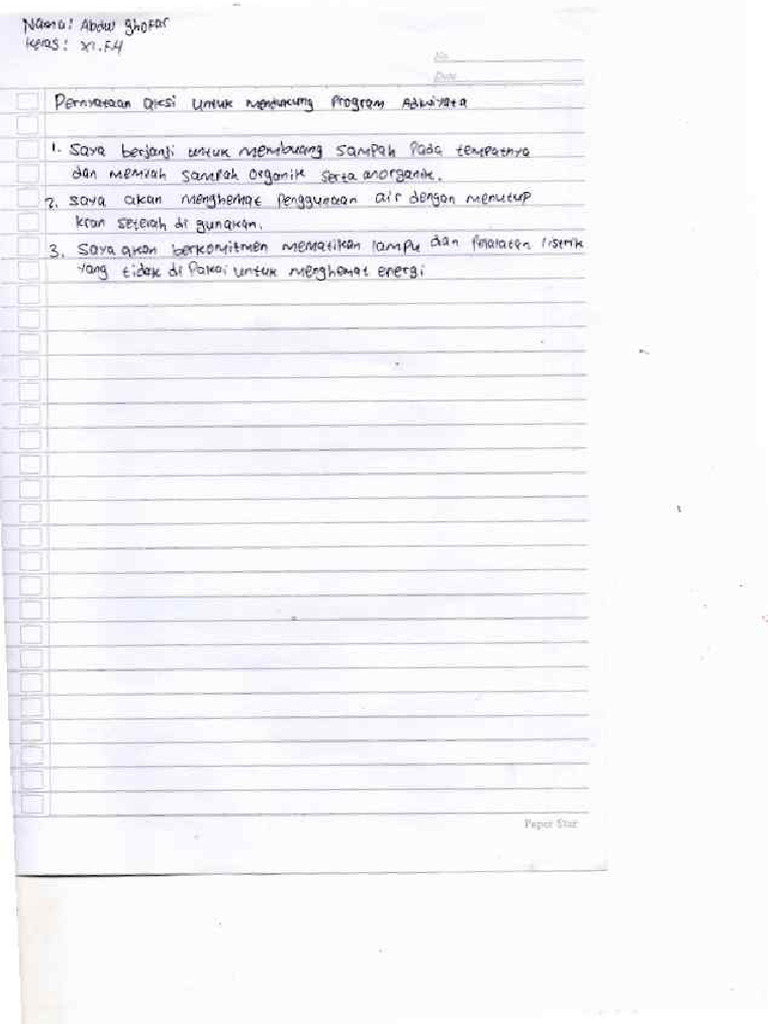 Nama: Abdul Ghofar
Kelas: XI.F4
No
Date
Pernyataan aksi untuk mendukung Program Adwiyata
1. Saya berjanji untuk membuang sampah Pada tempatnya
dan memilah sampah organik serta anorganik.
2. saya akan menghemat Penggunaan air dengan menutup
kran setelah di gunakan.
3. Saya akan berkomitmen mematikan lampu dan Pralaten listrik
yang tidak di Pakai untuk menghemat energi
Paper Star